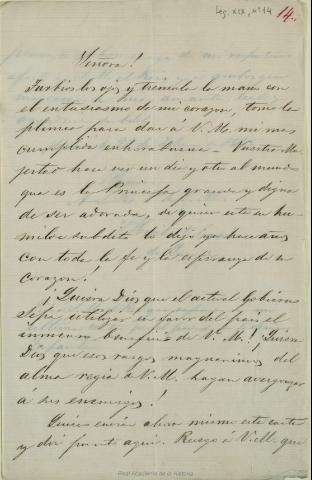 Leg. XIX, nº 14
14.
Señora!
Turbios los ojos y tremola la mano con
el entusiasmo de mi corazon, tomo la
pluma para dar á V. M. mi mas
cumplida enhorabuena – Vuestra Ma
jestad hace ver un dia y otro al mundo
que es la Princesa grande y digna
de ser adorada, de quien este su hu
milde subdito lo dijo ya hace años
con toda la fe y la esperanza de su
corazon!
¡Quiera Dios que el actual Gobierno
sepa utilizar en favor del pais el
inmenso beneficio de V. M.! ¡Quiera
Dios que esos rasgos magnanimos del
alma regia de V. M. hagan avergonzar
a sus enemigos!
Quise enviar ahora mismo esta carta
y doy punto aquí. Ruego á V. M. que
Real Academia de la Historia